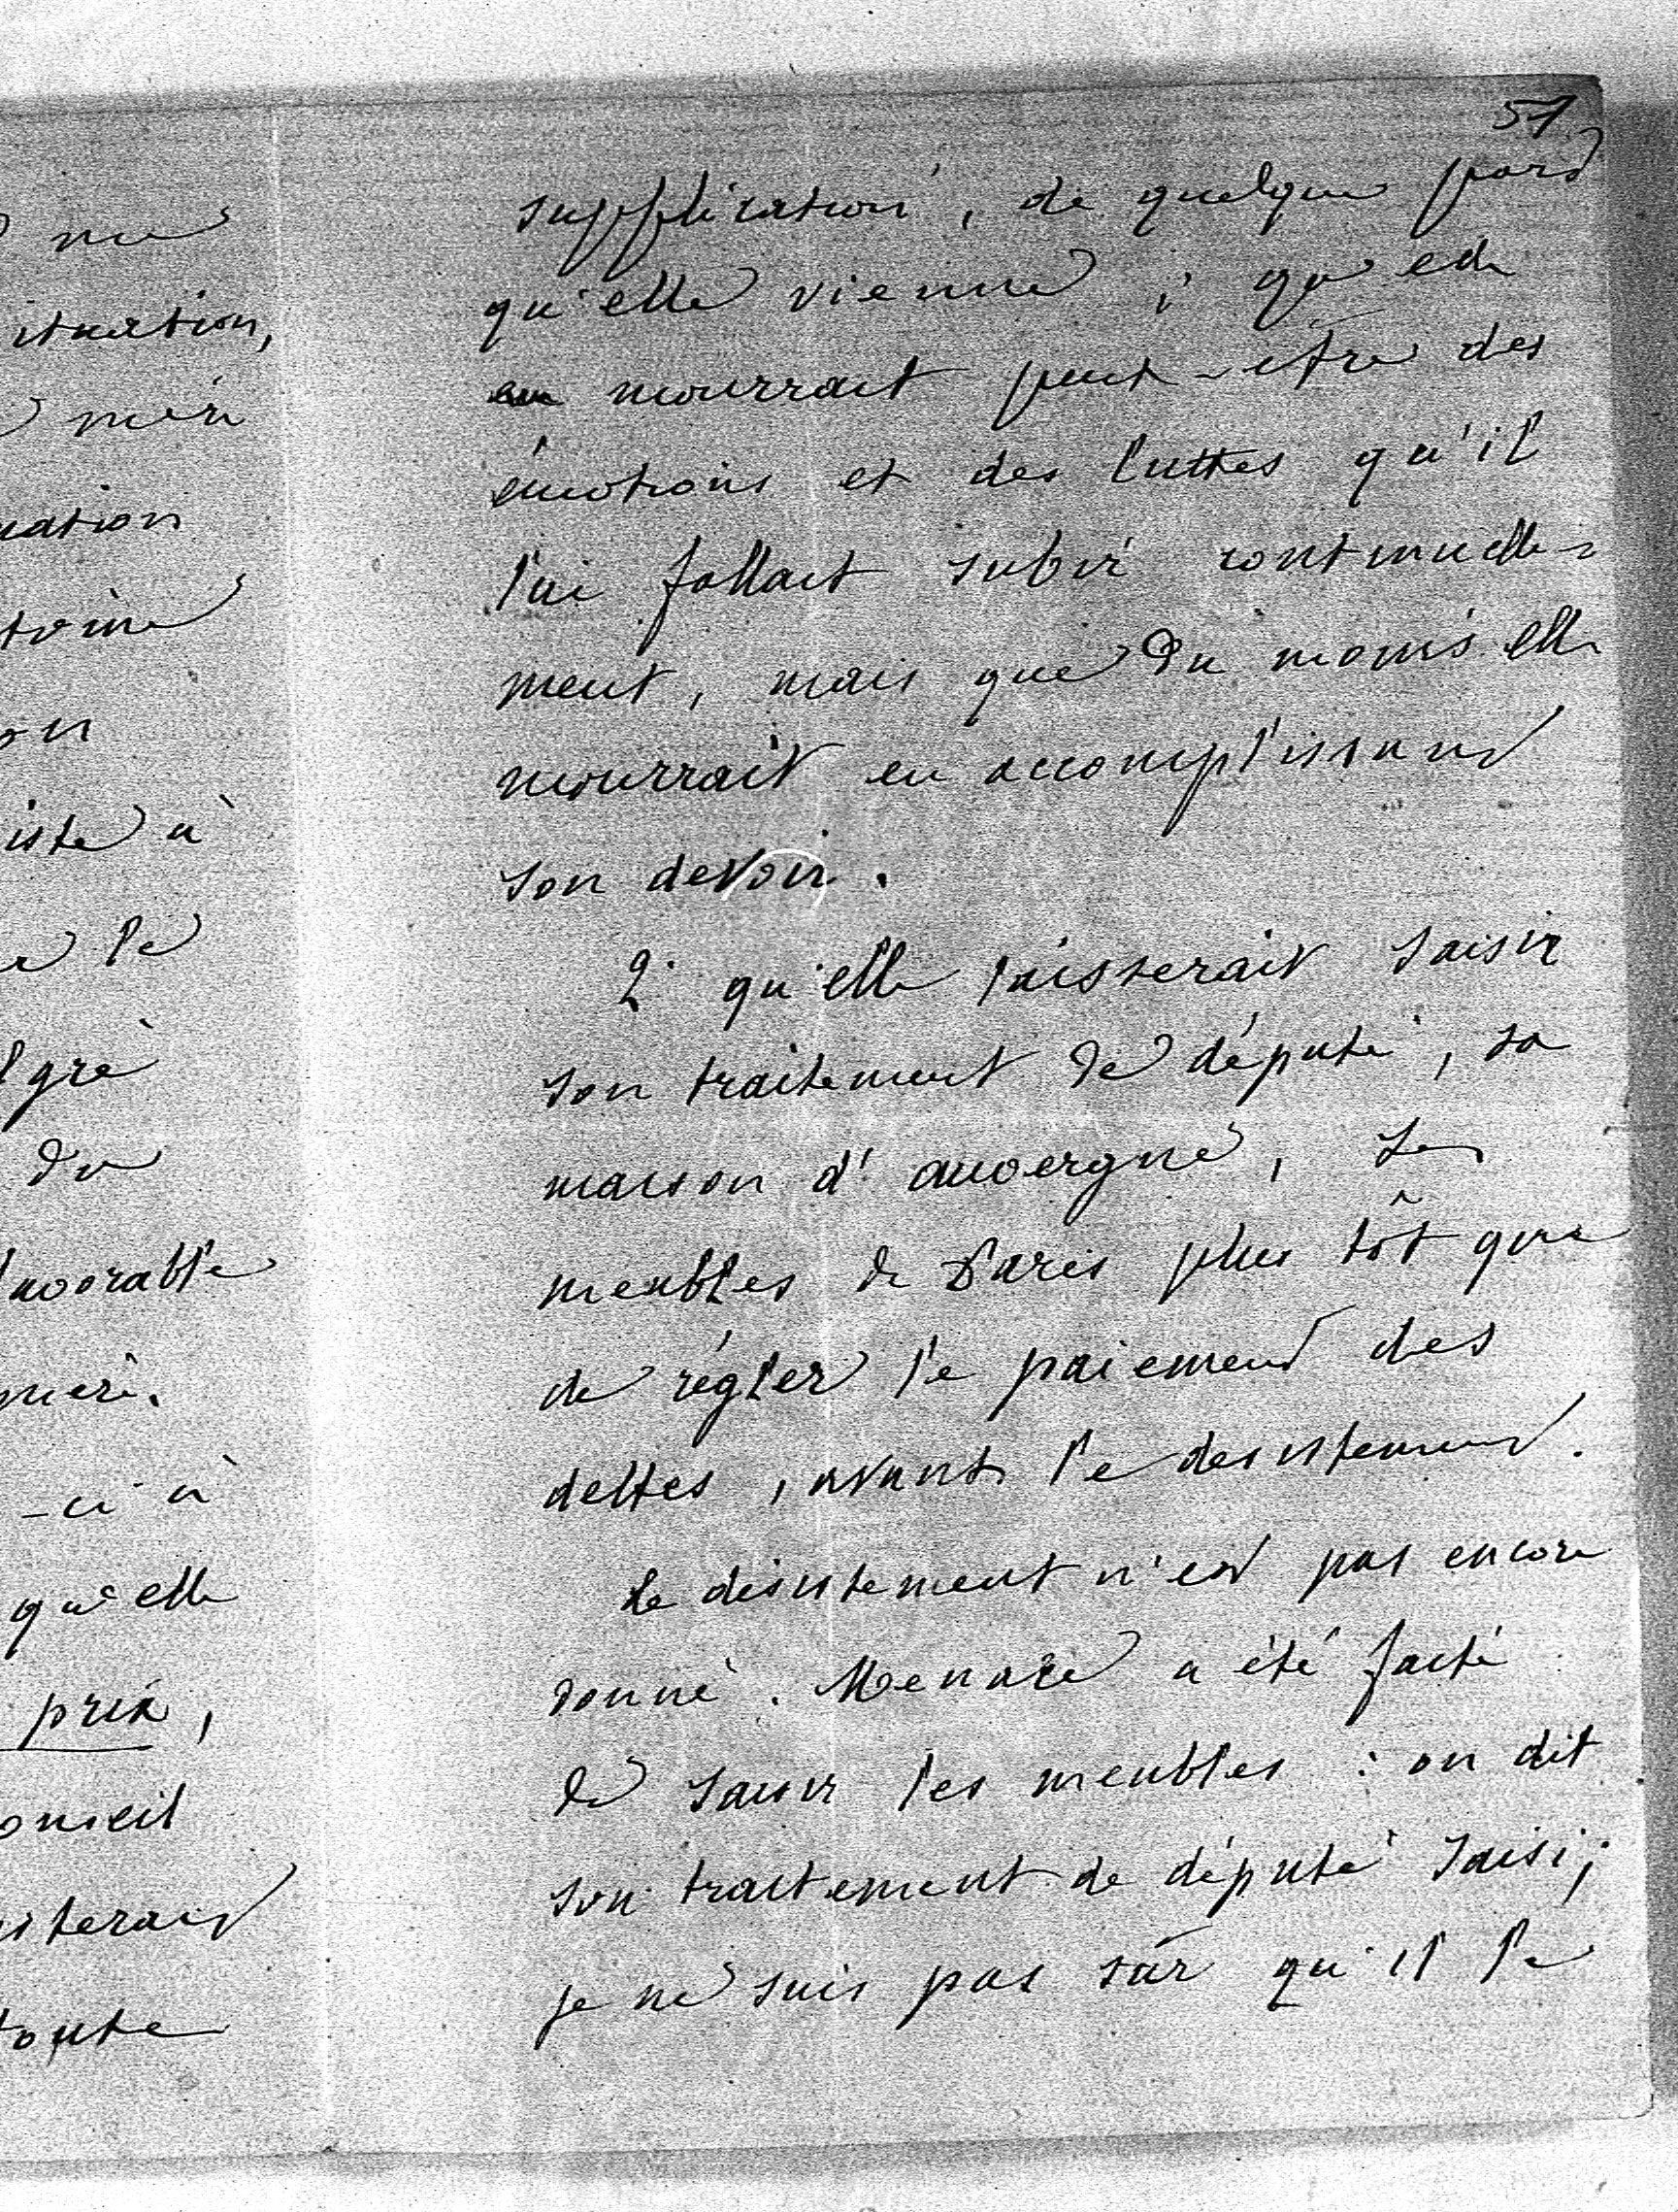 57
supplication, de quelque part
qu'elle vienne ; qu'elle
en mourrait peut-être des
émotions et des luttes qu'il
lui fallait subir continuelle-
ment, mais que du moins elle
mourrait en accomplissant
son devoir.
2° qu'elle laisserait saisir
son traitement de député, sa
maison d'auvergne, ses
meubles de Paris plus tôt que
de régler le paiement des
dettes, avant le desistement.
Le désistement n'est pas encore
donné. Menace a été faite
de saisir les meubles : on dit
son traitement de député saisi ;
je ne suis pas sûr qu'il le
me
ituation,
mère
uation
on
iste à
le
lgré
du
avorable
mère.
-ci à
qu'elle
prix,
onseil
isterait
toute